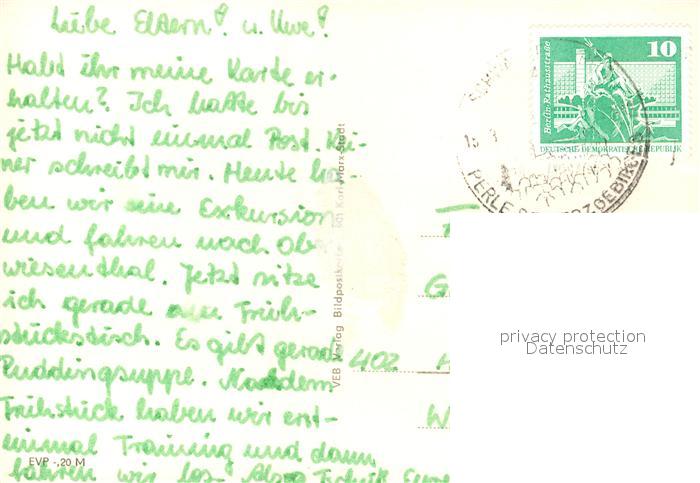 Liebe Eltern! u. Uwe!
Habt ihr meine Karte er-
halten? Ich hatte bis
jetzt nicht einmal Post. Kei-
ner schreibt mir. Heute ha-
ben wir eine Exkursion
und fahren nach Ober
wiesenthal. Jetzt sitze
ich gerade am Früh-
stückstisch. Es gibt gerade
Puddingsuppe. Nachdem
Frühstück haben wir erst-
einmal Training und dann
fahren wir los. Also Tschüß Eure
EVP -,20 M
VEB Verlag Bildpostkarte 901 Karl-Marx-Stadt
10
Berlin-Rathausstraße
DEUTSCHE DEMOKRATISCHE REPUBLIK
PERLE ERZGEBIRGE
G
402
W
privacy protection
Datenschutz